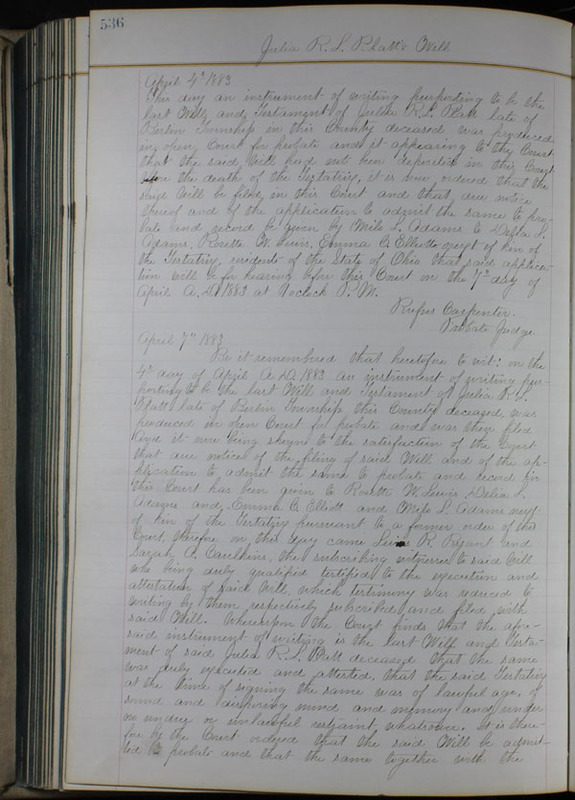 536
Julia R. L. Platt's Will
April 4th 1883
This day an instrument of writing purporting to be the
last Will and Testament of Julia R. L. Platt late of
Berlin Township in this County deceased was produced
in open Court for probate and it appearing to the Court
that the said Will had not been deposited in this Court
before the death of the Testatrix, it is now ordered that the
said Will be filed in this Court and that due notice
thereof and of the application to admit the same to pro-
bate and record be given by L. Adams to Delia L.
Adams, Rosette W. Lewis, Emma C. Elliott next of kin of
the Testatrix, residents of the State of Ohio that said applica-
tion will be for hearing before this Court on the 7th day of
April A.D. 1883 at 1 oclock P.M.
Rufus Carpenter.
Probate Judge.
April 7th 1883
Be it remembered that heretofore to wit: on the
4th day of April A.D. 1883 an instrument of writing pur-
porting to be the last Will and Testament of Julia R. L.
Platt late of Berlin Township this County deceased, was
produced in open Court for probate and was then filed
And it now being shown to the satisfaction of the Court
that due notice of the filing of said Will and of the ap-
plication to admit the same to probate and record in
this Court has been given to Rosette W. Lewis Delia L.
Adams and Emma C. Elliott and L. Adams next
of kin of the Testatrix pursuant to a former order of this
Court, therefore on this day came R. Bryant and
Sarah A. the subscribing witnesses to said Will
who being duly qualified testified to the execution and
attestation of said Will, which testimony was reduced to
writing by them respectively subscribed and filed with
said Will. Whereupon the Court finds that the afore-
said instrument of writing is the last Will and Testa-
ment of said Julia R. L. Platt deceased that the same
was duly executed and attested, that the said Testatrix
at the time of signing the same was of lawful age, of
sound and disposing mind and memory and under
no undue or unlawful restraint whatsoever. It is there-
fore by the Court ordered that the said Will be admit-
ted to probate and that the same together with the